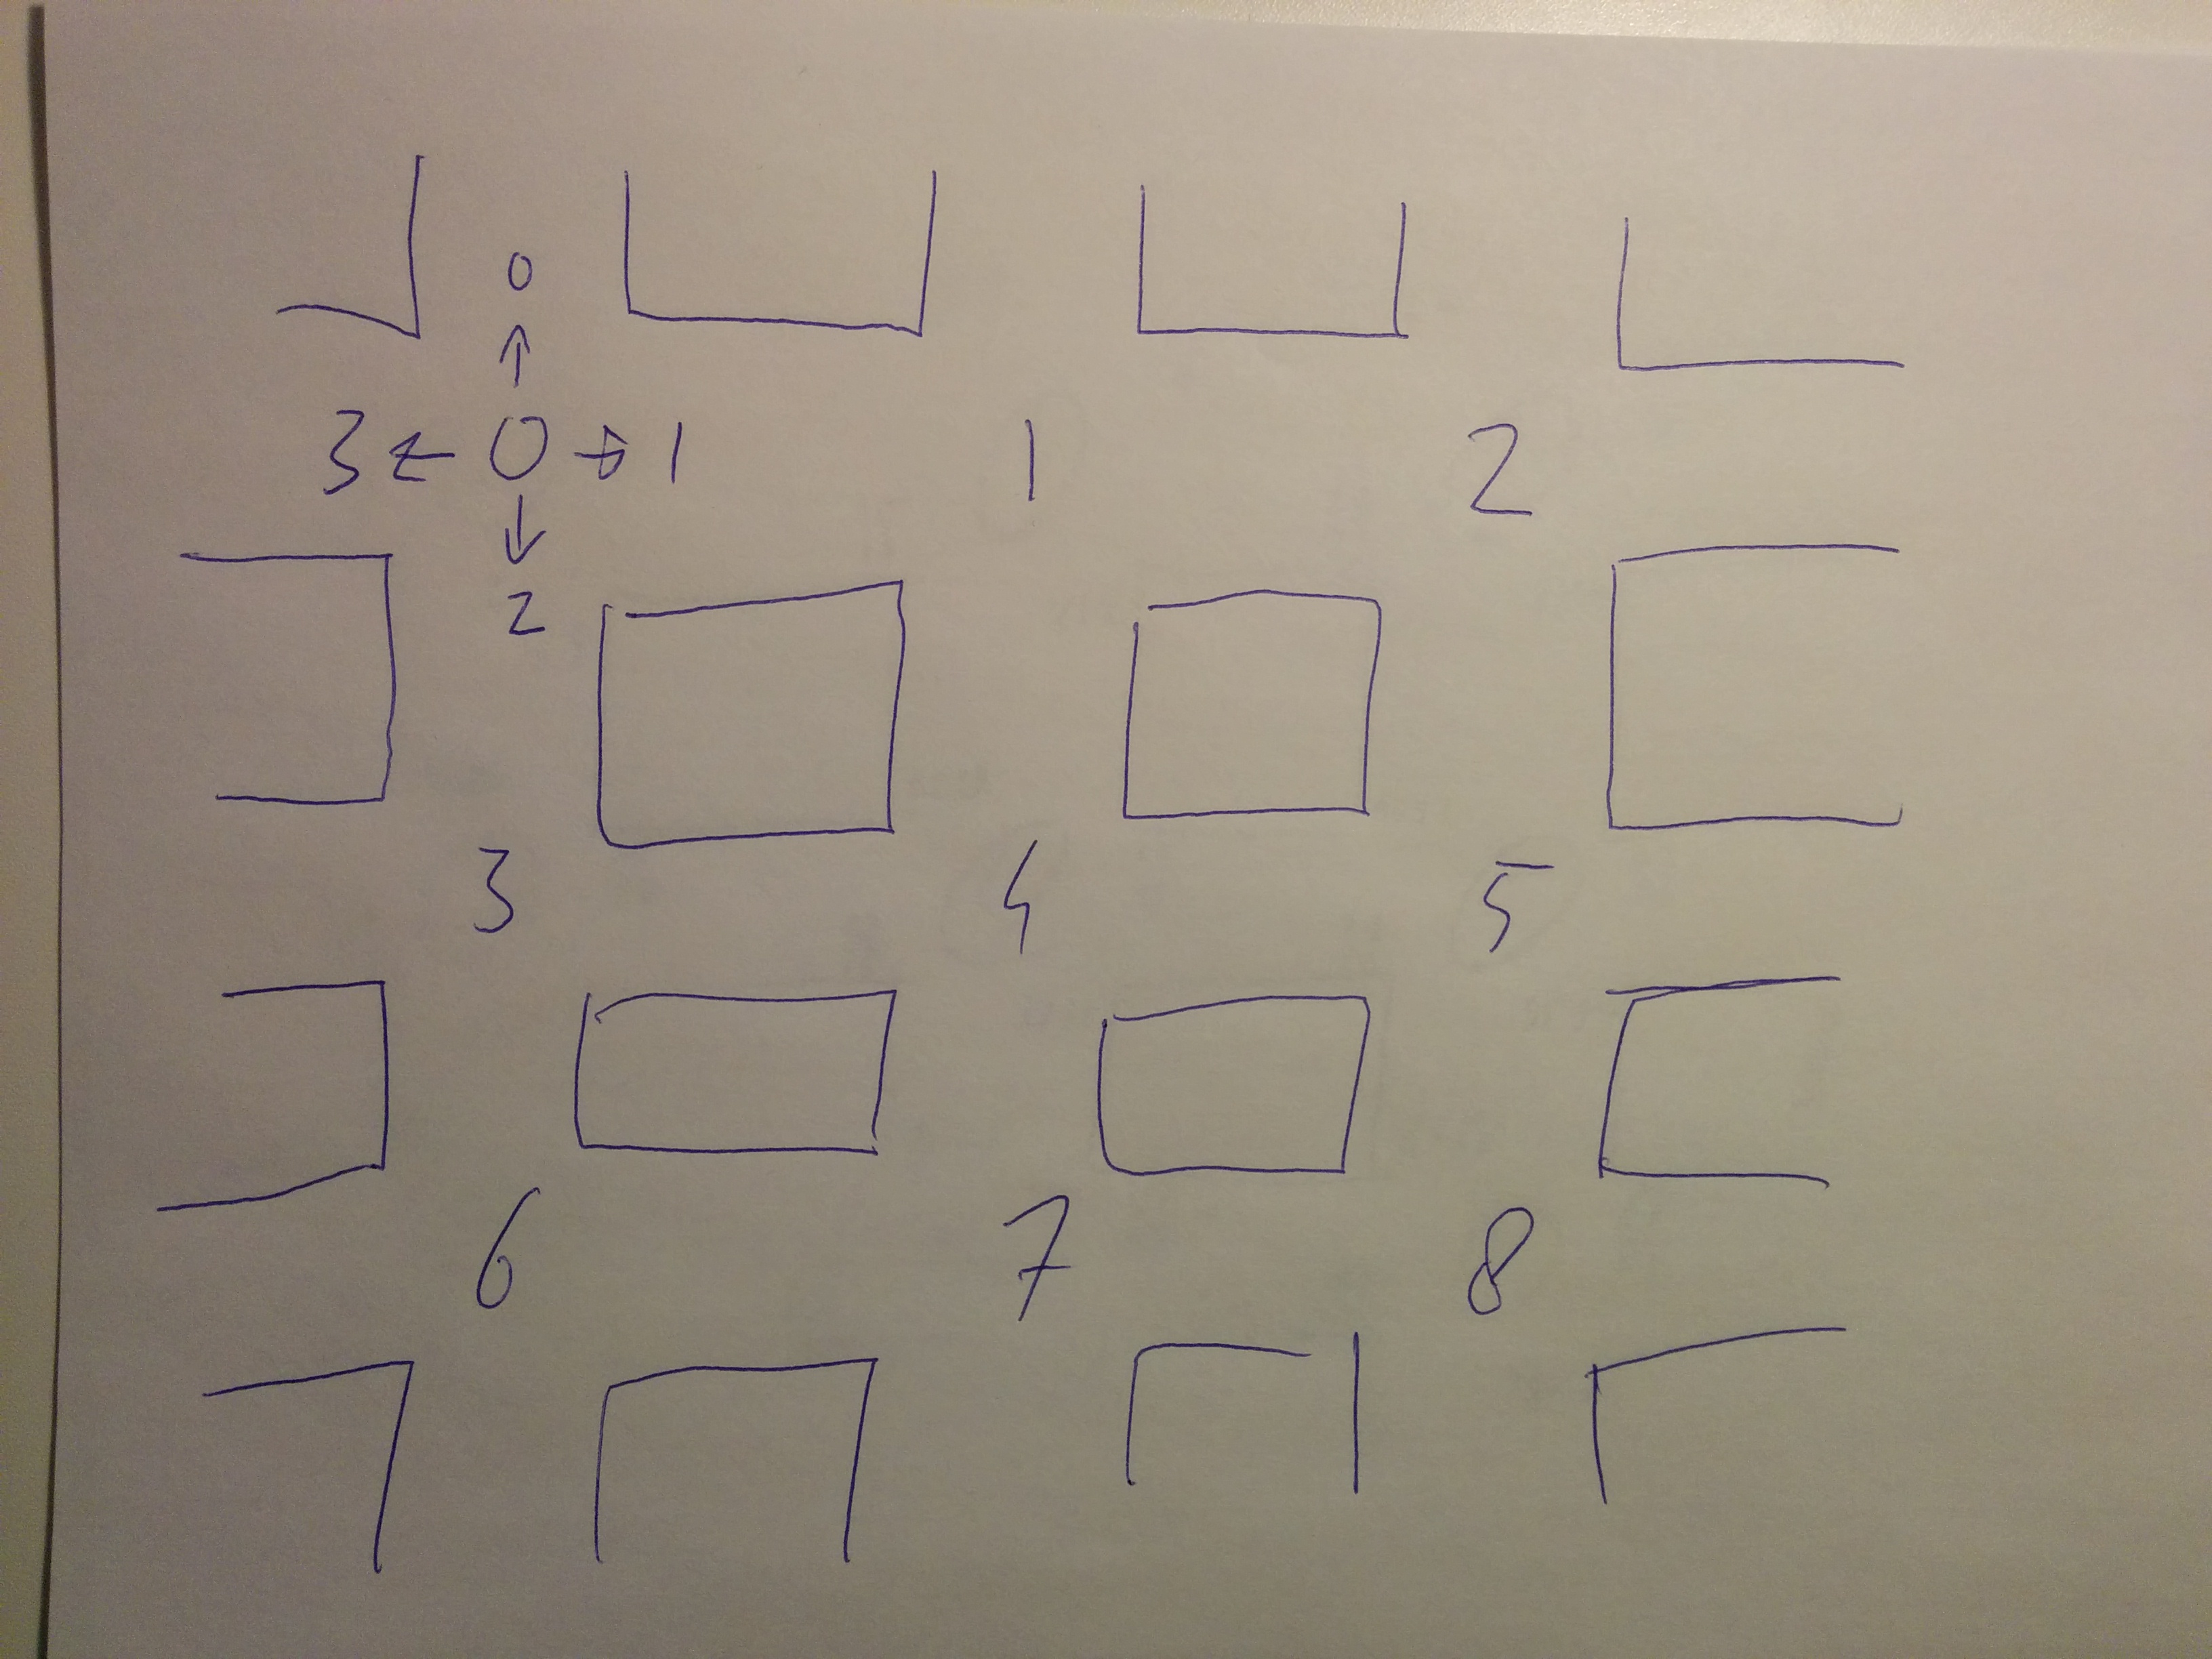 0
↑
3 ← 0 → 1 1 2
↓
2
3 4 5
6 7 8